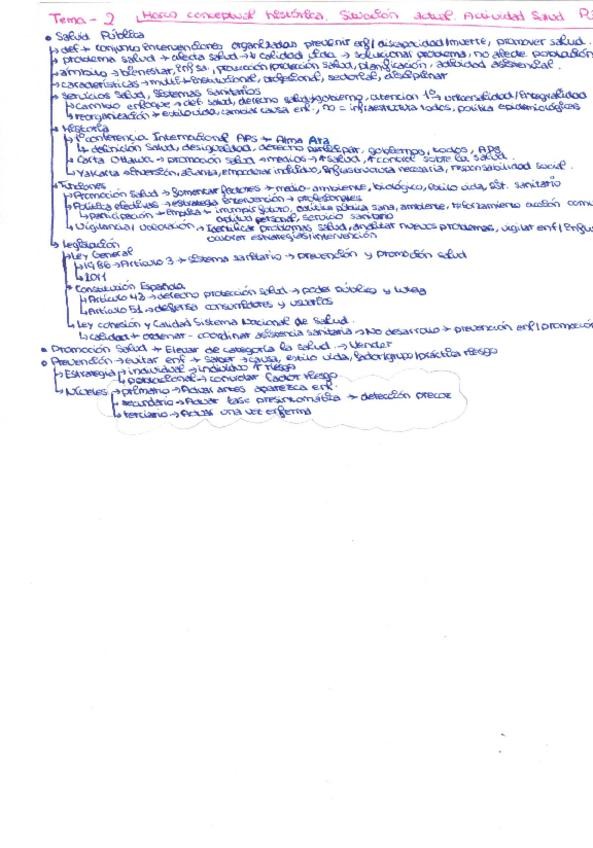 Tema - 2 Marco conceptual histórica. Situación actual. Actividad Salud
• Salud Pública
↳ def → conjunto intervenciones organizadas prevenir enf/discapacidad/muerte, promover salud.
↳ problema salud → afecta salud → ↓ calidad vida → solucionar problema, no afecte población
↳ ámbito → bienestar, promoción/protección salud, planificación, actividad asistencial.
↳ características → multi → institucional, profesional, sectorial, disciplinar
↳ Servicios Salud, Sistemas Sanitarios
↳ cambio enfoque → def. salud, derecho salud, gobierno, atención 1º → universalidad/integralidad
↳ reorganización → estilo vida, cambiar causa enf., no = infraestructura todos, política epidemiológicas
↳ Historia
↳ 1ª conferencia Internacional APS → Alma Ata
↳ definición Salud, desigualdad, derecho participar, gobiernos, todos, APS
↳ Carta Ottawa → promoción salud → medios → ↑ salud, ↑ control sobre la salud.
↳ Yakarta → inversión, alianza, empoderar individuo, infraestructura necesaria, responsabilidad social.
↳ Funciones
↳ Promoción Salud → fomentar factores → medio-ambiente, biológico, estilo vida, sist. sanitario
↳ Política efectivas → estrategia intervención → profesionales
↳ participación → implica → política pública sana, ambiente, reforzamiento acción
personal, servicio sanitario
↳ Vigilancia/valoración → Identificar problemas salud, analizar nuevos problemas, vigilar enf/
valorar estrategias/intervención
↳ Legislación
↳ Ley General
↳ 1986 → Artículo 3 → sistema sanitario → prevención y promoción salud
↳ 2011
↳ Constitución Española
↳ Artículo 43 → derecho protección salud → poder público y
↳ Artículo 51 → defensa consumidores y usuarios
↳ Ley cohesión y Calidad Sistema Nacional de Salud.
↳ calidad → ordenar - coordinar asistencia sanitaria → No desarrollo → prevención enf/promoción
• Promoción Salud → Elevar de categoría la salud. → Vender
• Prevención → evitar enf → saber → causa, estilo vida, factor/grupo/práctica riesgo
↳ Estrategia individual → individuo ↑ riesgo
↳ poblacional → controlar factor riesgo
↳ Niveles → primario → Actuar antes aparezca enf.
↳ secundario → Actuar fase presintomática → detección precoz
↳ terciario → Actuar una vez enfermo